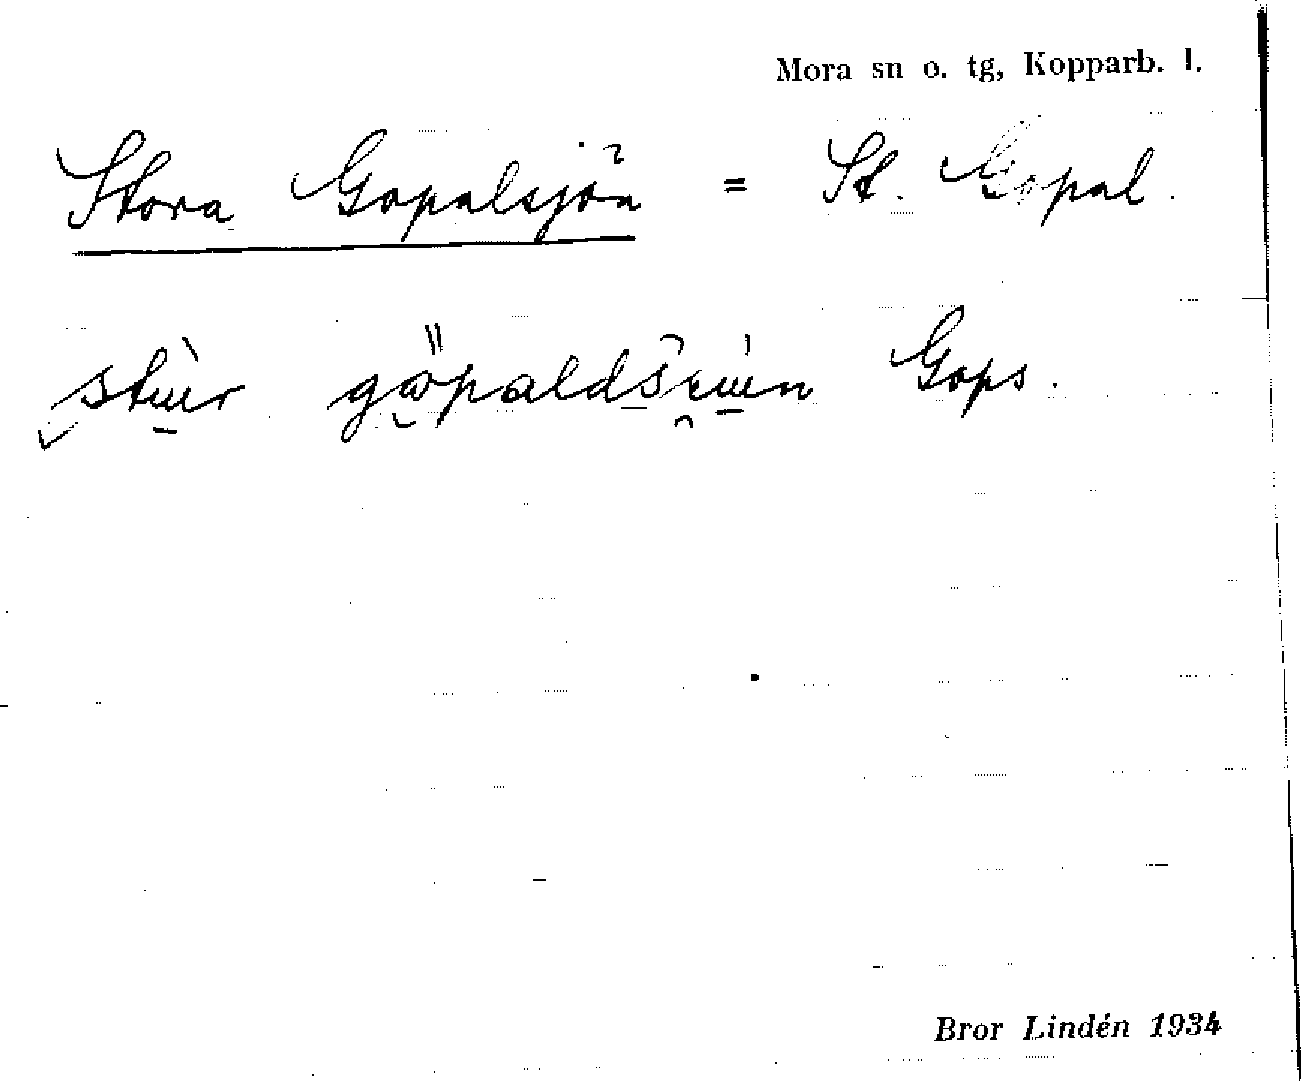 Mora sn o. tg, Kopparb. l.
Stora Gopalsjön = St. Gopal.
Gops.
Bror Lindén 1934